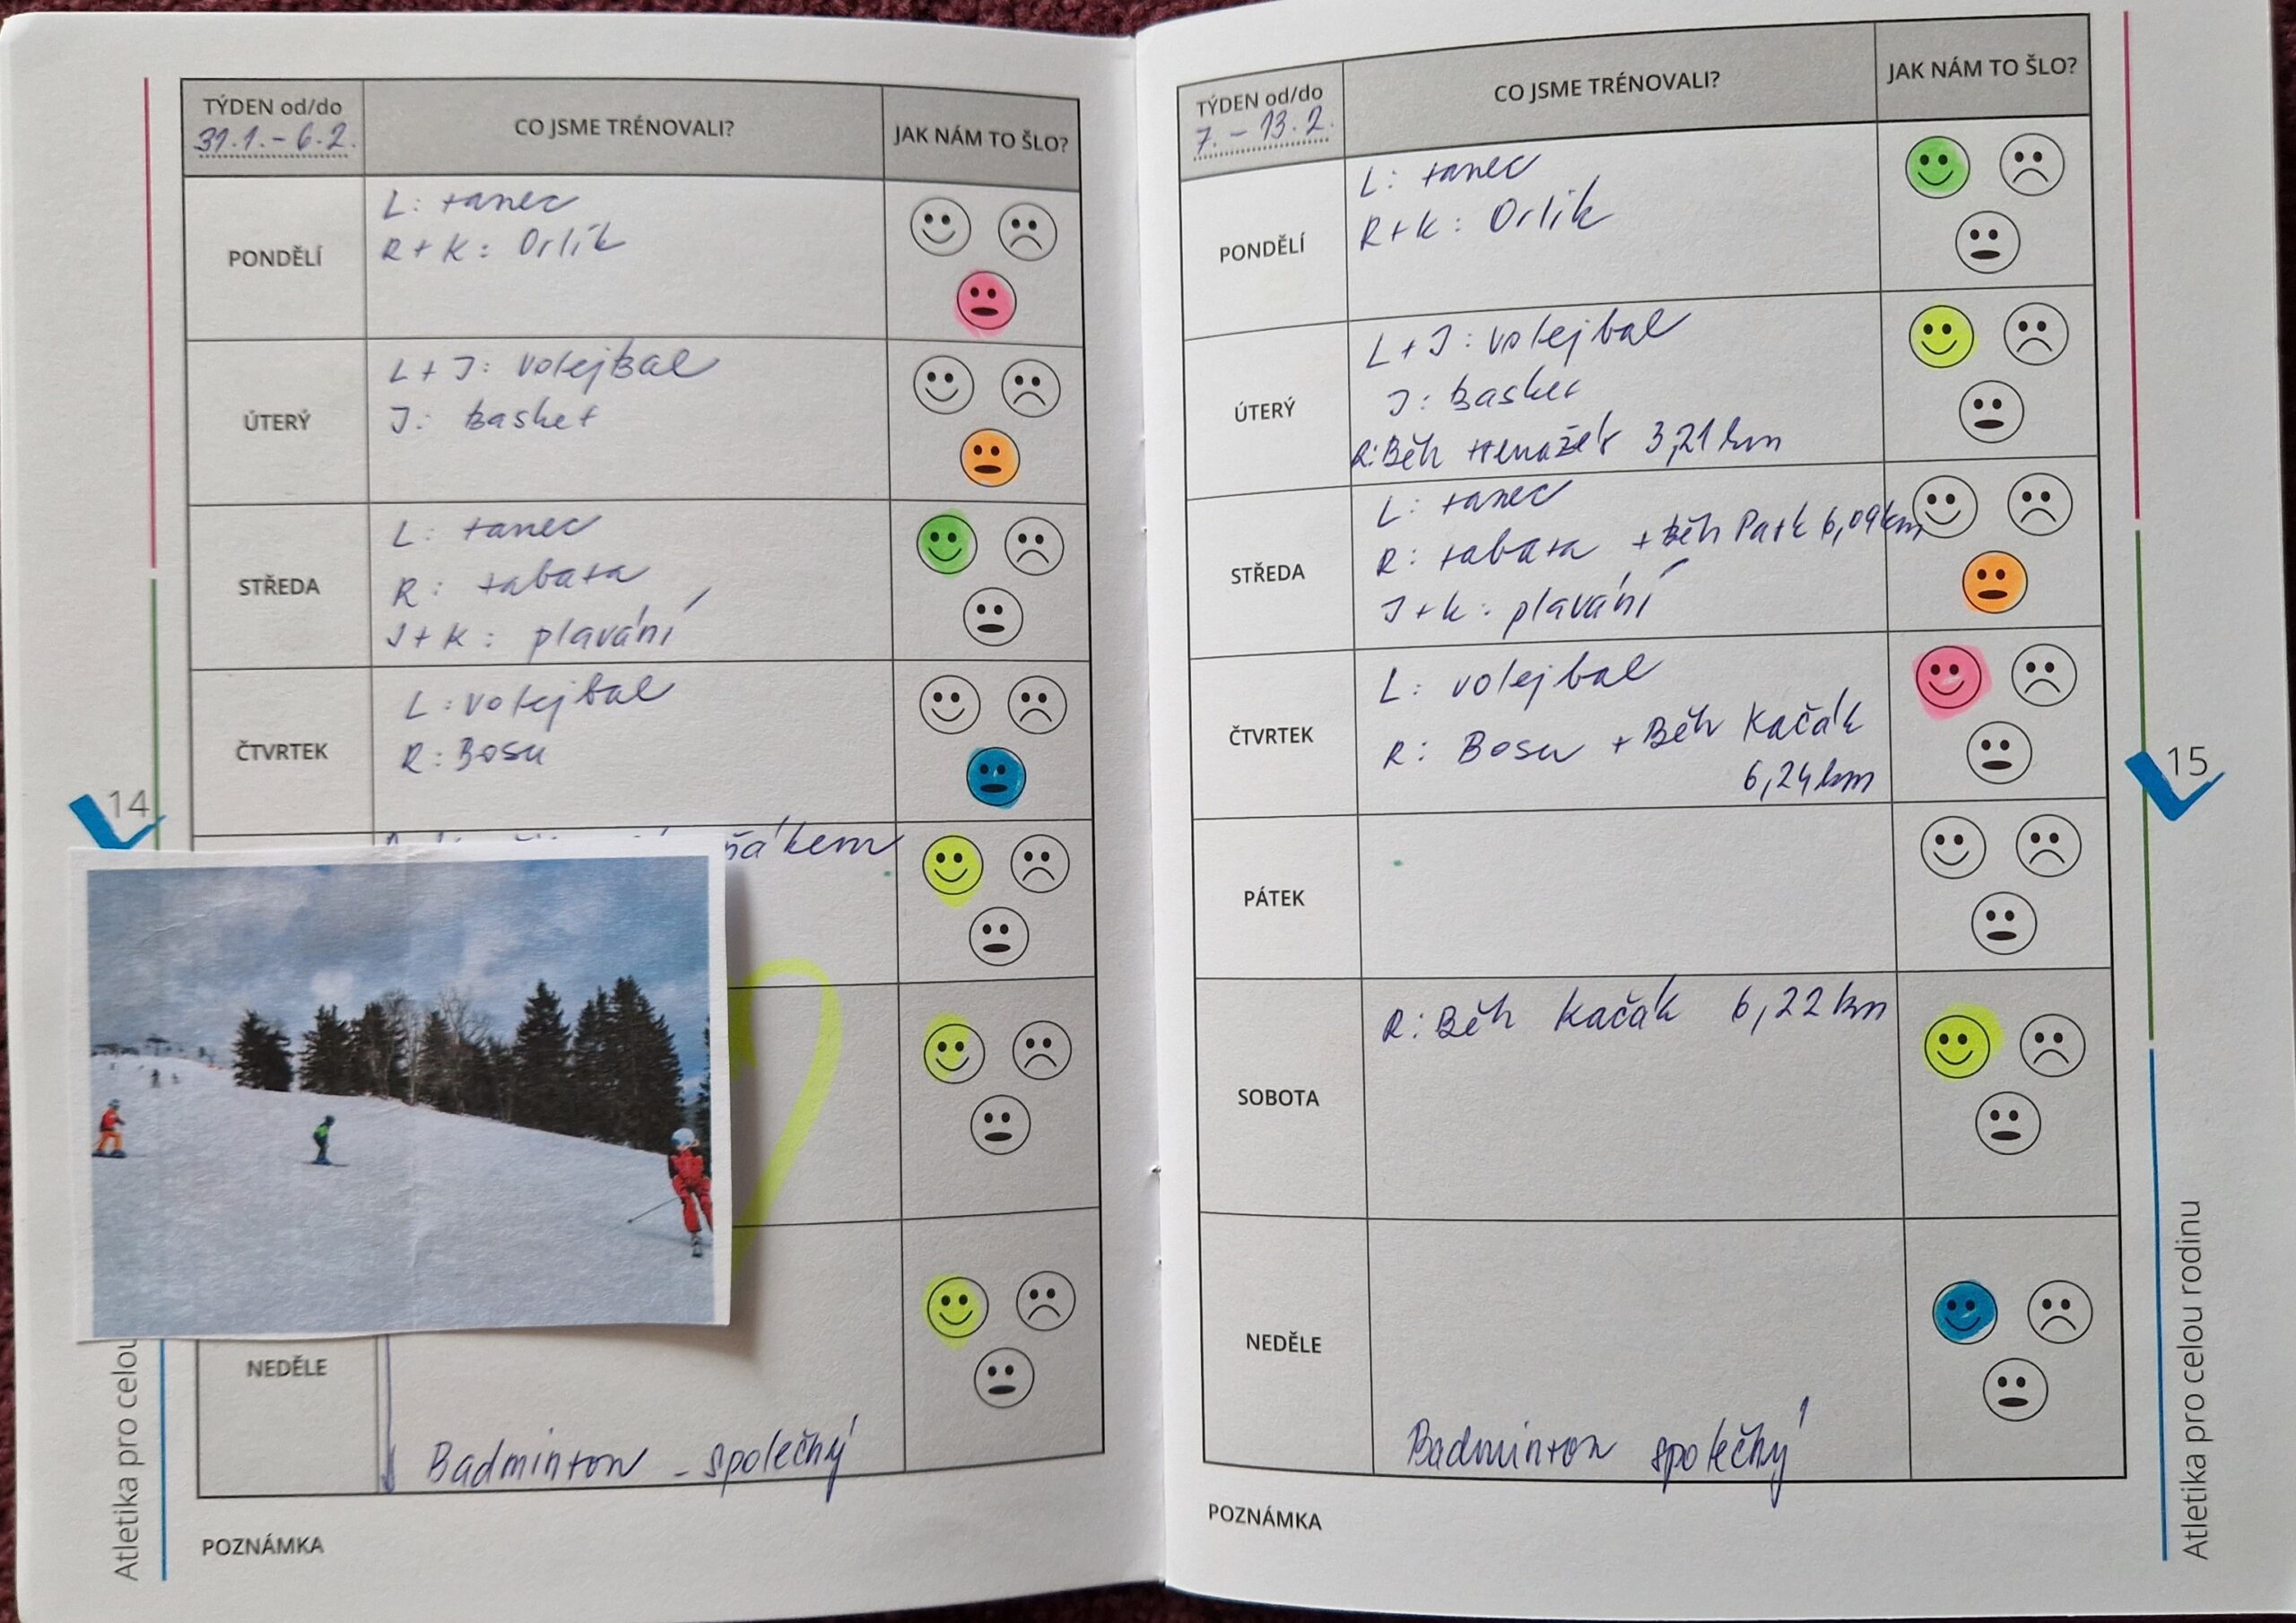 TÝDEN od/do
31.1. - 6.2.
CO JSME TRÉNOVALI?
JAK NÁM TO ŠLO?
PONDĚLÍ
L: tanec
R + K: Orlík
ÚTERÝ
L + J: volejbal
J: basket
STŘEDA
L: tanec
R: tabata
J + K: plavání
ČTVRTEK
L: volejbal
R: Bosu
NEDĚLE
Badminton - společný
POZNÁMKA
14
Atletika pro celou
TÝDEN od/do
7. - 13.2.
CO JSME TRÉNOVALI?
JAK NÁM TO ŠLO?
PONDĚLÍ
L: tanec
R+K: Orlík
ÚTERÝ
L + J: volejbal
J: basket
R: Běh 3,21 km
STŘEDA
L: tanec
R: tabata + Běh Park 6,09 km
J + K: plavání
ČTVRTEK
L: volejbal
R: Bosu + Běh Kačák
6,24 km
PÁTEK
SOBOTA
R: Běh Kačák 6,22 km
NEDĚLE
Badminton společný
POZNÁMKA
15
Atletika pro celou rodinu